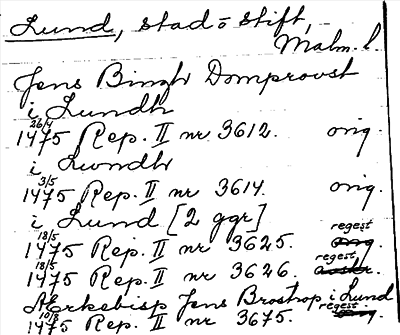 Lund, stad o stift,
Malm. l.
Jens Bingh Domprovst
i Lundh
26/4
1475 Rep. II nr 3612. orig.
i Lwndh
3/5
1475 Rep. II nr 3614. orig.
i Lund [2 ggr]
18/5 regest
1475 Rep. II nr 3625. orig.
18/5 regest
1475 Rep. II nr 3626.
Ærkebisp Jens Brostrop i Lund
10/8 regest
1475 Rep. II nr 3675. orig.